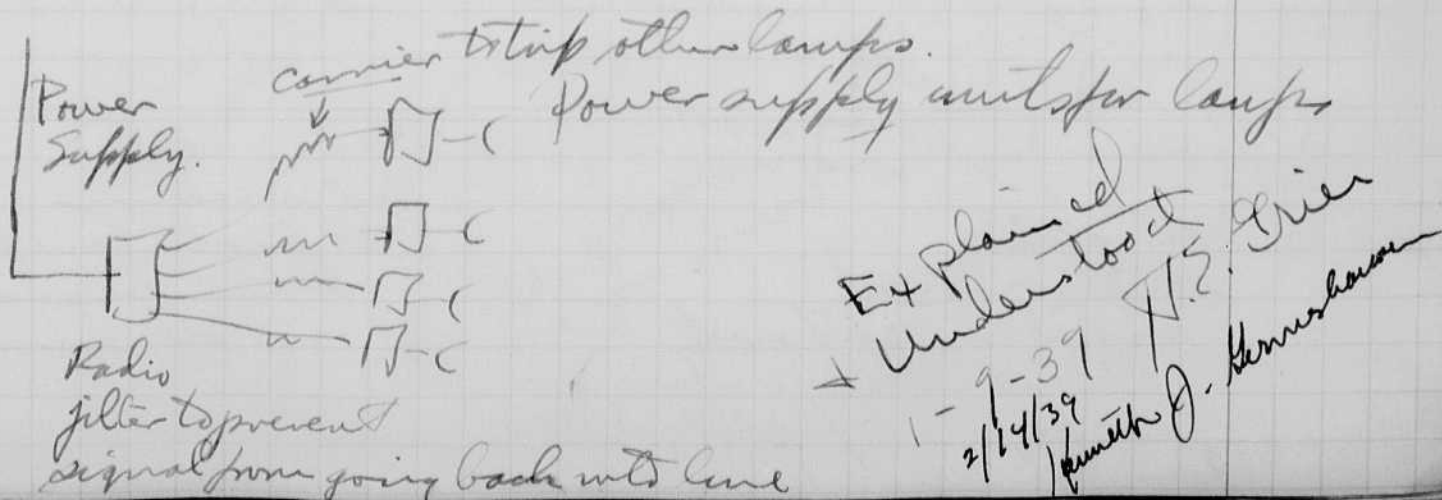 carrier to trip other lamps.
Power
Supply.
Power supply units for lamps
Radio
filter to prevent
signal from going back into line
Explained
+ Understood
1-9-39 H.E. Grier
2/14/39
Kenneth J. Germeshausen